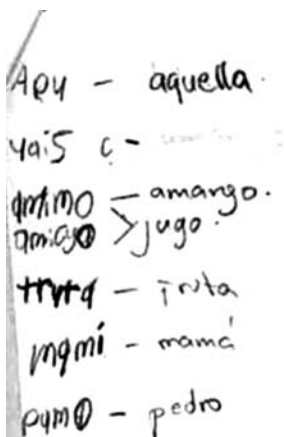 Aey - aquella.
yais c -
amimo - amargo.
amigo > jugo.
tryta - fruta
mqmi - mamá
pqmo - pedro